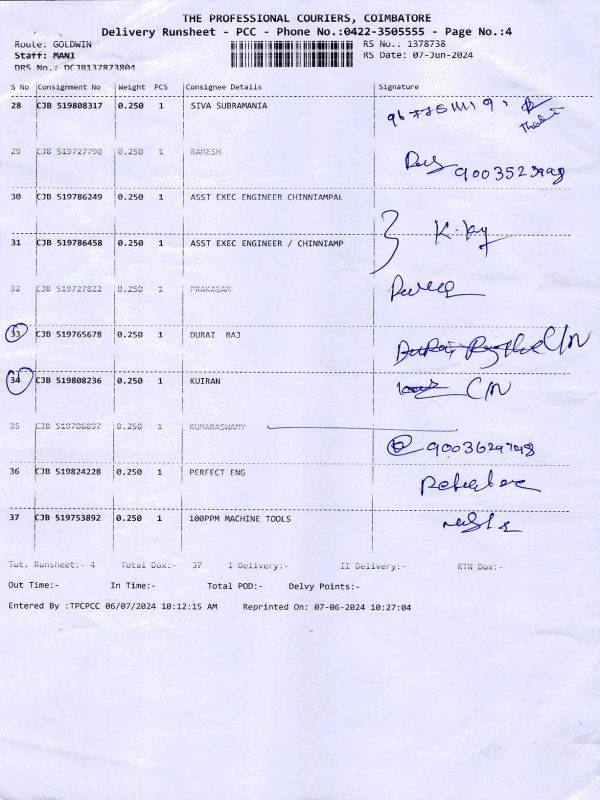 THE PROFESSIONAL COURIERS, COIMBATORE
Delivery Runsheet - PCC - Phone No.:0422-3505555 - Page No.:4
Route: GOLDWIN RS No.: 1378738
Staff: MANI RS Date: 07-Jun-2024
DRS No.: DCJB137873804
S No Consignment No Weight PCS Consignee Details Signature
28 CJB 519808317 0.250 1 SIVA SUBRAMANIA
29 CJB 519727798 0.250 1 RAMESH
30 CJB 519786249 0.250 1 ASST EXEC ENGINEER CHINNIAMPAL
31 CJB 519786458 0.250 1 ASST EXEC ENGINEER / CHINNIAMP
32 CJB 519727822 0.250 1 PRAKASAM
33 CJB 519765678 0.250 1 DURAI RAJ C/N
34 CJB 519808236 0.250 1 KUIRAN C/N
35 CJB 519786897 0.250 1 KUMARASWAMY
36 CJB 519824228 0.250 1 PERFECT ENG
37 CJB 519753892 0.250 1 100PPM MACHINE TOOLS
Tot. Runsheet:- 4 Total Dox:- 37 I Delivery:- II Delivery:- RTN Dox:-
Out Time:- In Time:- Total POD:- Delvy Points:-
Entered By :TPCPCC 06/07/2024 10:12:15 AM Reprinted On: 07-06-2024 10:27:04